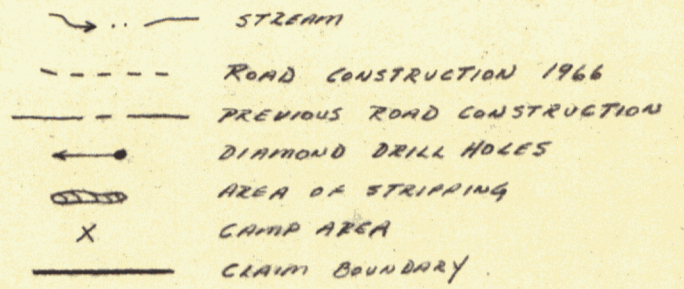 STREAM
ROAD CONSTRUCTION 1966
PREVIOUS ROAD CONSTRUCTION
DIAMOND DRILL HOLES
AREA OF STRIPPING
X CAMP AREA
CLAIM BOUNDARY